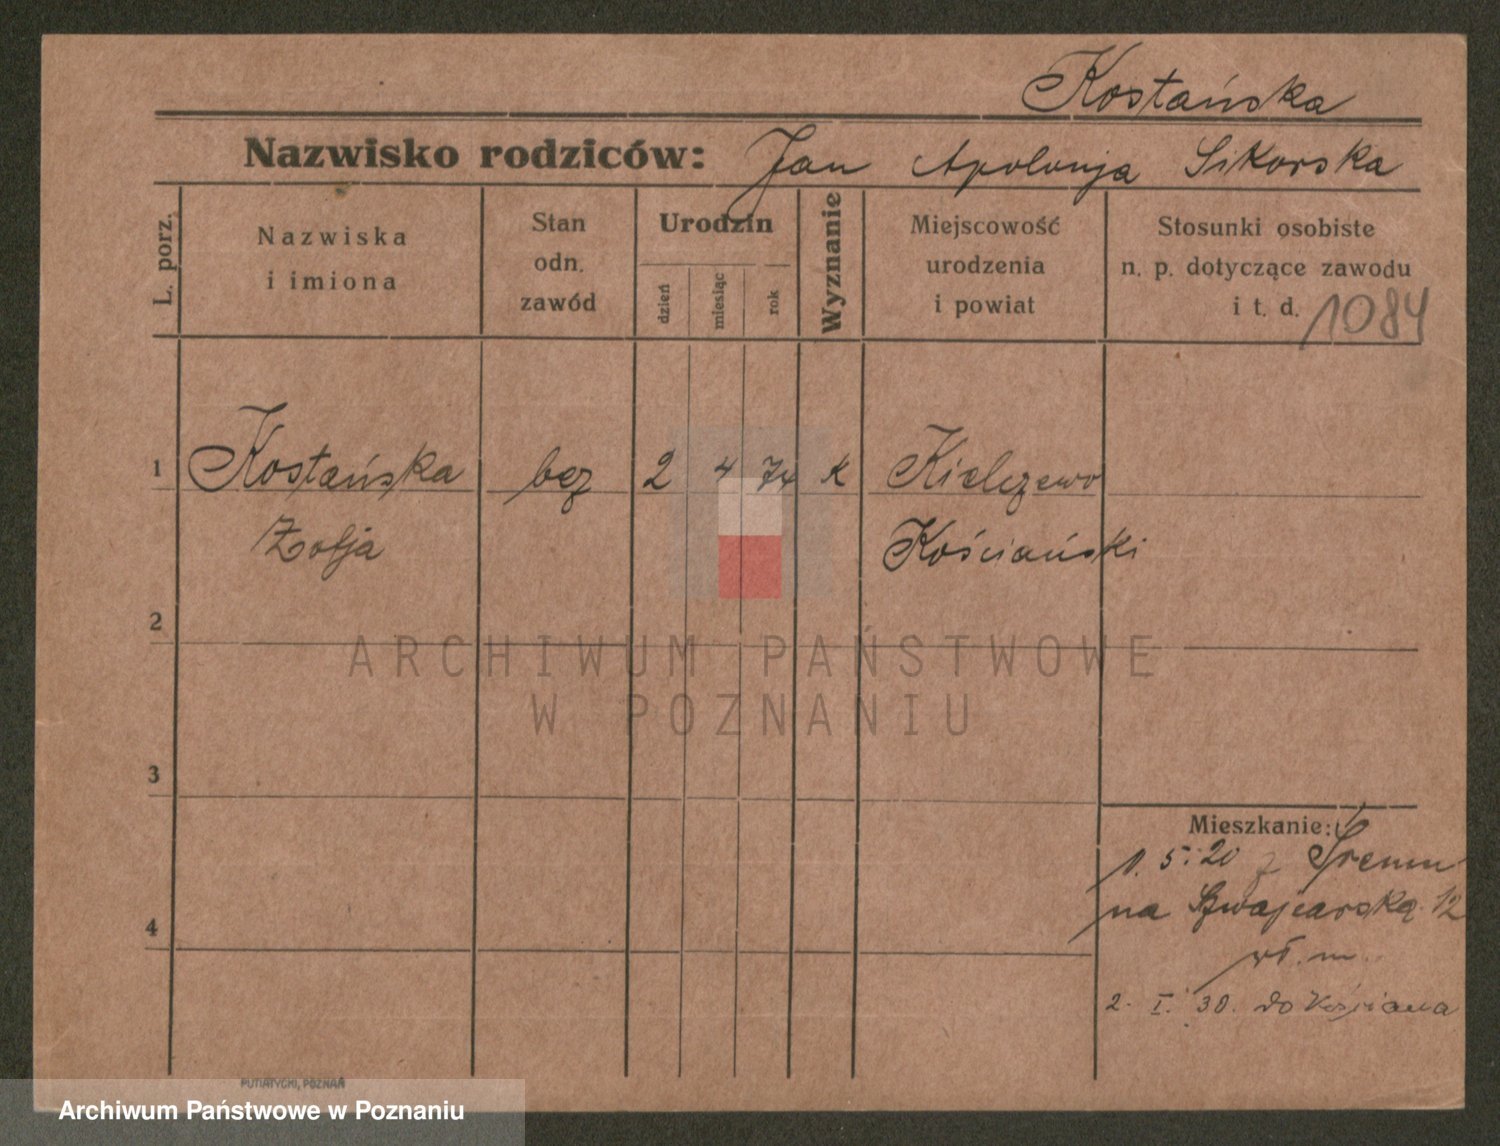 Kostańska
Nazwisko rodziców: Jan Apolonja Sikorska
L. porz.
Nazwiska
i imiona
Stan
odn.
zawód
Urodzin
dzień
miesiąc
rok
Wyznanie
Miejscowość
urodzenia
i powiat
Stosunki osobiste
n. p. dotyczące zawodu
i t. d. 1084
1 Kostańska bez 2 4 74 k Kielczewo
Zofja Kościański
2
3
4
Mieszkanie:
1. 5. 20 z Śremu
na Szwajcarską 12
wł. m.
2. I. 30. do Kościana
PUTIATYCKI, POZNAŃ
ARCHIWUM PAŃSTWOWE
W POZNANIU
Archiwum Państwowe w Poznaniu